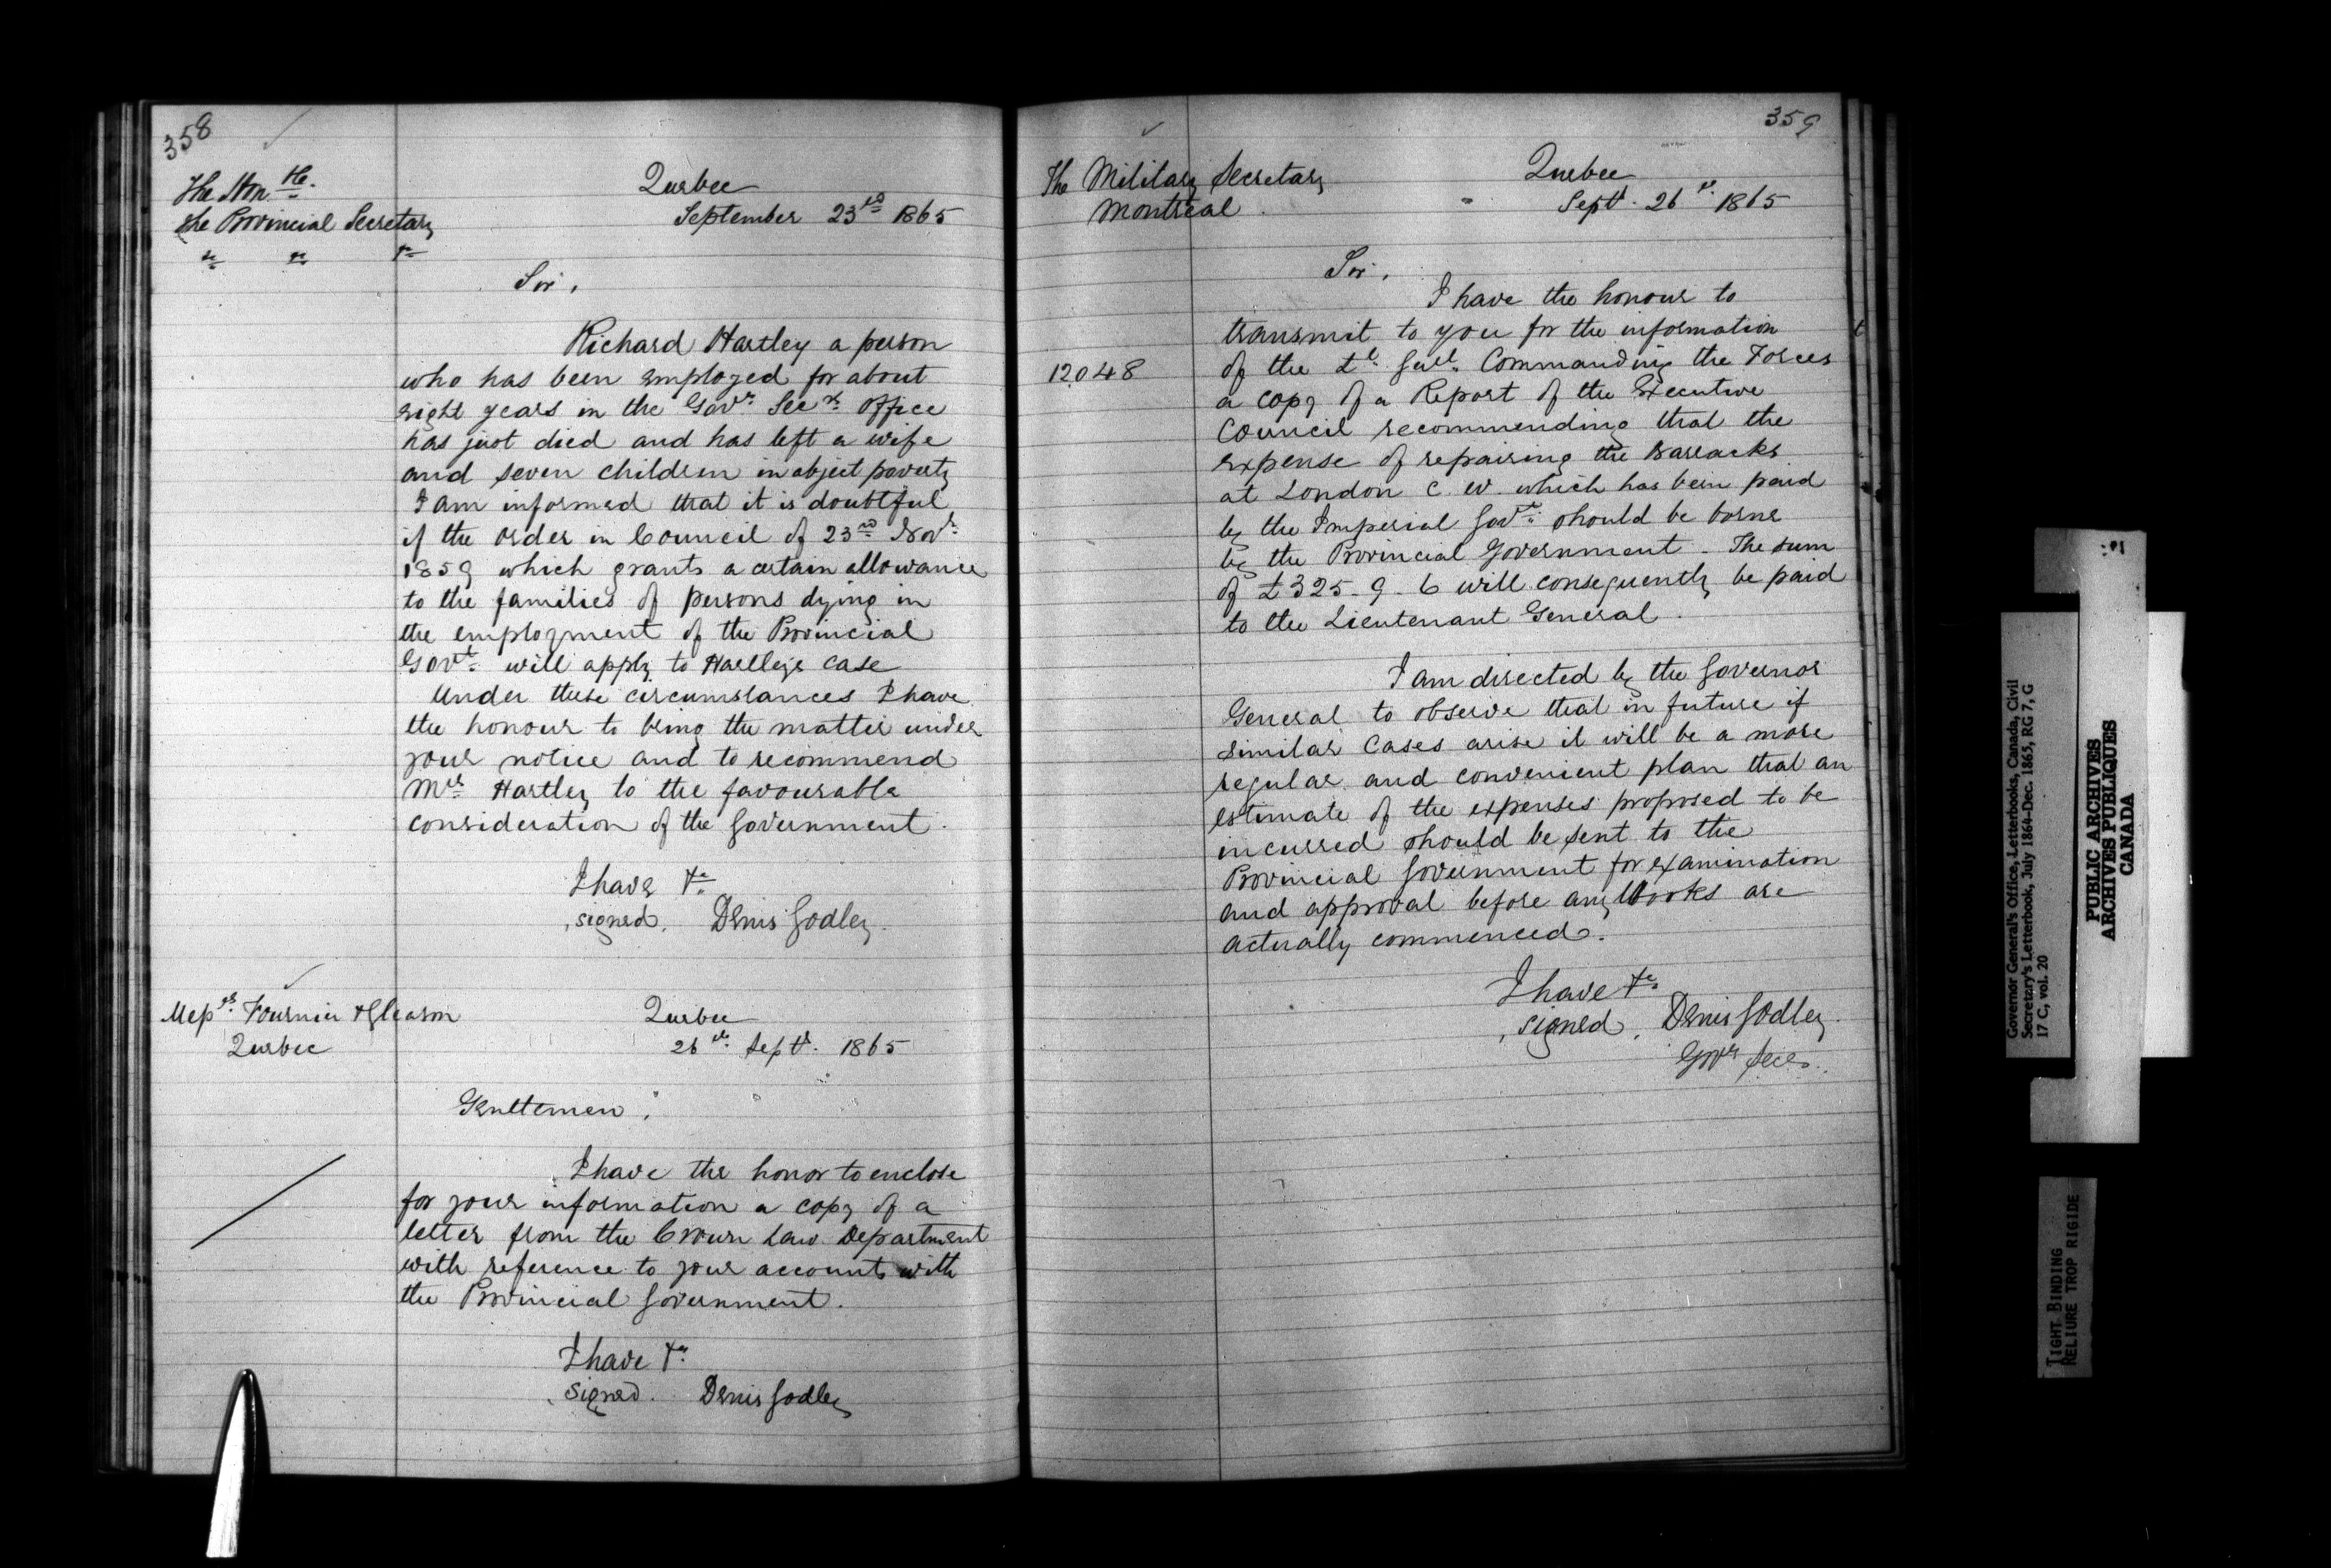 358
The Hon.ble
the Provincial Secretary
&c &c &c
Quebec
September 23rd 1865
Sir,
Richard Hartley a person
who has been employed for about
eight years in the Govr. Secy's office
has just died and has left a wife
and seven children in abject poverty
I am informed that it is doubtful
if the order in Council of 23rd Novr.
1859 which grants a certain allowance
to the families of persons dying in
the employment of the Provincial
Govt. will apply to Hartleys case
Under these circumstances I have
the honour to bring the matter under
your notice and to recommend
Mrs Hartley to the favourable
consideration of the Government.
I have &c
signed. Denis Godley.
Messrs. Fournier & Gleason
Quebec
Quebec
26th Septr. 1865
Gentlemen,
I have the honor to enclose
for your information a copy of a
letter from the Crown Law Department
with reference to your accounts with
the Provincial Government.
I have &c
signed. Denis Godley
359
The Military Secretary
Montreal.
Quebec
Septr. 26th 1865
Sir,
I have the honour to
transmit to you for the information
12048
of the Lt. Genl. Commanding the Forces
a copy of a Report of the Executive
Council recommending that the
expense of repairing the Barracks
at London C. W. which has been paid
by the Imperial Govt. should be borne
by the Provincial Government - The sum
of £325-9-6 will consequently be paid
to the Lieutenant General.
I am directed by the Governor
General to observe that in future if
similar cases arise it will be a more
regular and convenient plan that an
estimate of the expenses proposed to be
incurred should be sent to the
Provincial Government for examination
and approval before any Works are
actually commenced.
I have &c.
signed. Denis Godley.
Govrs Secy.
Governor General's Office, Letterbooks, Canada, Civil
Secretary's Letterbook, July 1864-Dec. 1865, RG 7, G
17 C, vol. 20
PUBLIC ARCHIVES
ARCHIVES PUBLIQUES
CANADA
TIGHT BINDING
RELIURE TROP RIGIDE